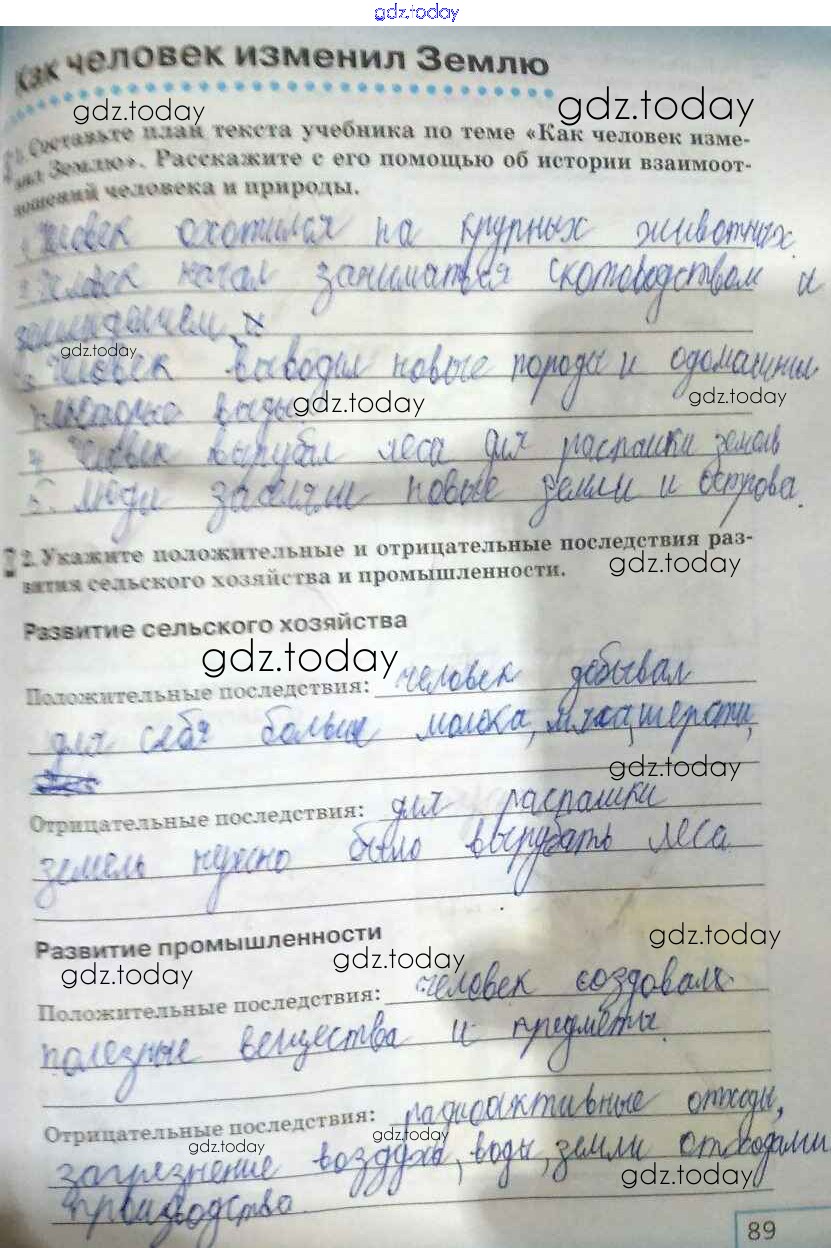 gdz.today
Как человек изменил Землю
gdz.today gdz.today
1. Составьте план текста учебника по теме «Как человек изме-
нил Землю». Расскажите с его помощью об истории взаимоот-
ношений человека и природы.
1. Человек охотился на крупных животных.
2. Человек начал заниматься скотоводством и
земледелием
gdz.today
3. Человек выводил новые породы и одомашнил
gdz.today
несколько виды.
gdz.today
4. Человек вырубал леса для распашки земель
5. Люди заселяли новые земли и острова.
2. Укажите положительные и отрицательные последствия раз-
gdz.today
вития сельского хозяйства и промышленности.
Развитие сельского хозяйства
gdz.today
Положительные последствия: человек добывал
для себя больше молока, мяса, шерсти,
gdz.today
Отрицательные последствия: для распашки
земель нужно было вырубать леса
Развитие промышленности
gdz.today
gdz.today gdz.today
Положительные последствия: человек создовал
полезные вещества и предметы.
Отрицательные последствия: радиоактивные отходы,
gdz.today gdz.today
загрезнение воздуха, воды, земли отходами
gdz.today
производства.
89